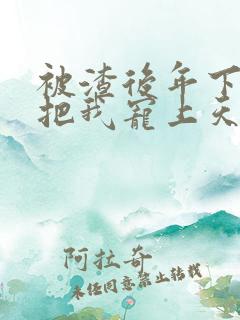 被渣後年下
把我寵上天
阿拉奇
未经同意禁止转载